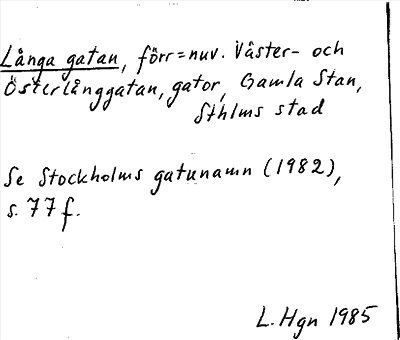 Långa gatan, förr = nuv. Väster- och
Österlånggatan, gator, Gamla Stan,
Sthlms stad
Se Stockholms gatunamn (1982),
s. 77 f.
L. Hgn 1985